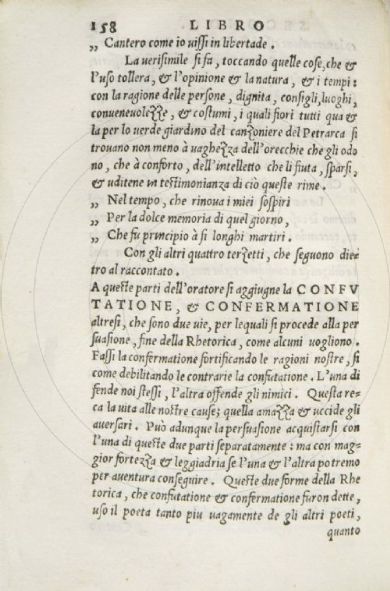 158 LIBRO
„ Cantero come io uissi in libertade.
La uerisimile si fa, toccando quelle cose, che &
l'uso tollera, & l'opinione & la natura, & i tempi:
con la ragione delle persone, dignita, consigli, luoghi,
conueneuolezze, & costumi, i quali fiori tutti qua &
la per lo uerde giardino del canzoniere del Petrarca si
trouano non meno à uaghezza dell'orecchie che gli odo
no, che à conforto, dell'intelletto che li fiuta, sparsi,
& uditene in testimonianza di ciò queste rime.
„ Nel tempo, che rinoua i miei sospiri
„ Per la dolce memoria di quel giorno,
„ Che fu principio à si longhi martiri.
Con gli altri quattro terzetti, che seguono die
tro al raccontato.
A queste parti dell'oratore si aggiugne la CONFV
TATIONE, & CONFERMATIONE
altresi, che sono due uie, per lequali si procede alla per
suasione, fine della Rhetorica, come alcuni uogliono.
Fassi la confermatione fortificando le ragioni nostre, si
come debilitando le contrarie la confutatione. L'una di
fende noi stessi, l'altra offende gli nimici. Questa re-
ca la uita alle nostre cause; quella amazza & uccide gli
auersari. Può adunque la persuasione acquistarsi con
l'una di queste due parti separatamente: ma con mag-
gior fortezza & leggiadria se l'una & l'altra potremo
per auentura conseguire. Queste due forme della Rhe
torica, che confutatione & confermatione furon dette,
uso il poeta tanto piu uagamente de gli altri poeti,
quanto